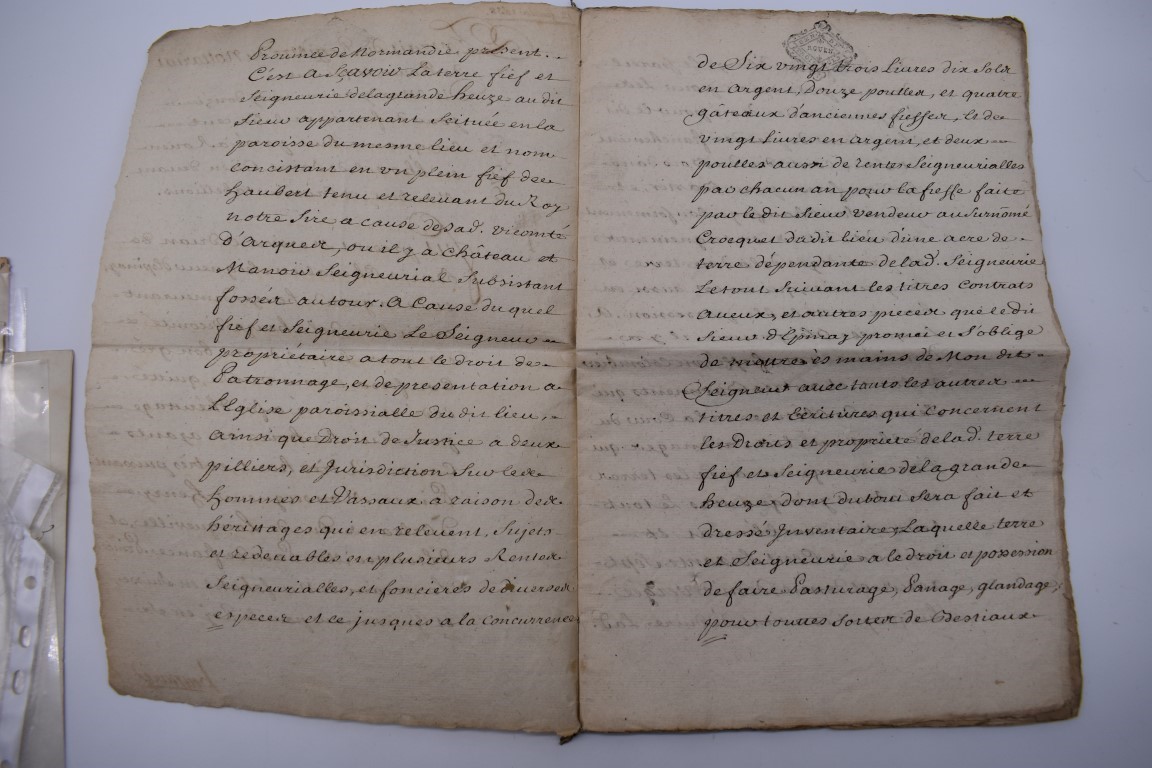 Province de Normandie present..
C'est a Sçavoir La terre fief et
Seigneurie de la grande heuze au dit
Sieur appartenant Scituée en la
paroisse du mesme lieu et nom
concistant en un plein fief de
haubert tenu et relevant du Roy
notre Sire a cause de sad. vicomté
D'Arques, ou il y a château et
Manoir Seigneurial Subsistant
fossés autour. A Cause du quel
fief et Seigneurie Le Seigneur
propriétaire a tout le droit de
Patronnage, et de presentation a
L'Eglise paroissialle du dit lieu,
ainsi que Droit de Justice a deux
pilliers, et Jurisdiction Sur les
hommes et Vassaux a raison des
héritages qui en relevent, Sujets
et redevables en plusieurs Rentes
Seigneurialles, et foncieres de diverses
especes et ce jusques a la concurrence
ROUEN
de Six vingt trois Livres dix Sols
en argent, Douze poulles, et quatre
gâteaux d'anciennes fieffes, & de
vingt Livres en argent, et deux
poulles aussi de rentes Seigneurialles
par chacun an pour la fieffe faite
par le dit Sieur vendeur au Surnômé
Crocquet dudit lieu d'une acre de
terre dépendante de lad. Seigneurie
Le tout Suivant les titres Contrats
aveux, et autres pieces que le dit
Sieur D'Epinay promet et S'oblige
de mettre ès mains de Mon dit
Seigneur avec toutes les autres
titres et Ecritures qui concernent
les Droits et propriété de lad. terre
fief et Seigneurie de la grande
heuze dont du tout Sera fait et
dressé Inventaire, La quelle terre
et Seigneurie a le droit et possession
de faire Pasturage, Panage, glandage,
pour toutes sortes de Bestiaux